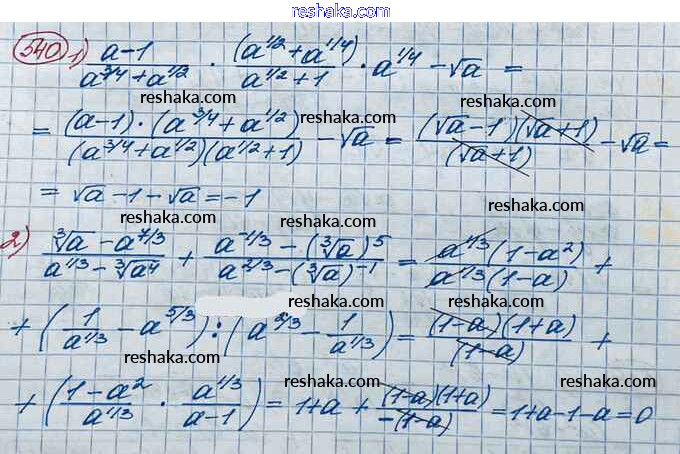 reshaka.com
540 1) (a-1)/(a^{3/4}+a^{1/2}) · (a^{1/2}+a^{1/4})/(a^{1/2}+1) · a^{1/4} - √a =
reshaka.com reshaka.com
= ((a-1)·(a^{3/4}+a^{1/2}))/((a^{3/4}+a^{1/2})(a^{1/2}+1)) - √a = ((√a-1)(√a+1))/((√a+1)) - √a =
reshaka.com reshaka.com
= √a - 1 - √a = -1
reshaka.com reshaka.com
2) (∛a - a^{7/3})/(a^{1/3} - ∛a⁴) + (a^{-1/3} - (∛a)^5)/(a^{2/3} - (∛a)^{-1}) = (a^{1/3}(1-a²))/(a^{1/3}(1-a)) +
reshaka.com reshaka.com
+ (1/a^{1/3} - a^{5/3}) : (a^{2/3} - 1/a^{1/3}) = ((1-a)(1+a))/((1-a)) +
reshaka.com reshaka.com
+ ((1-a²)/a^{1/3} · a^{1/3}/(a-1)) = 1+a + ((1-a)(1+a))/(-(1-a)) = 1+a-1-a=0
reshaka.com reshaka.com